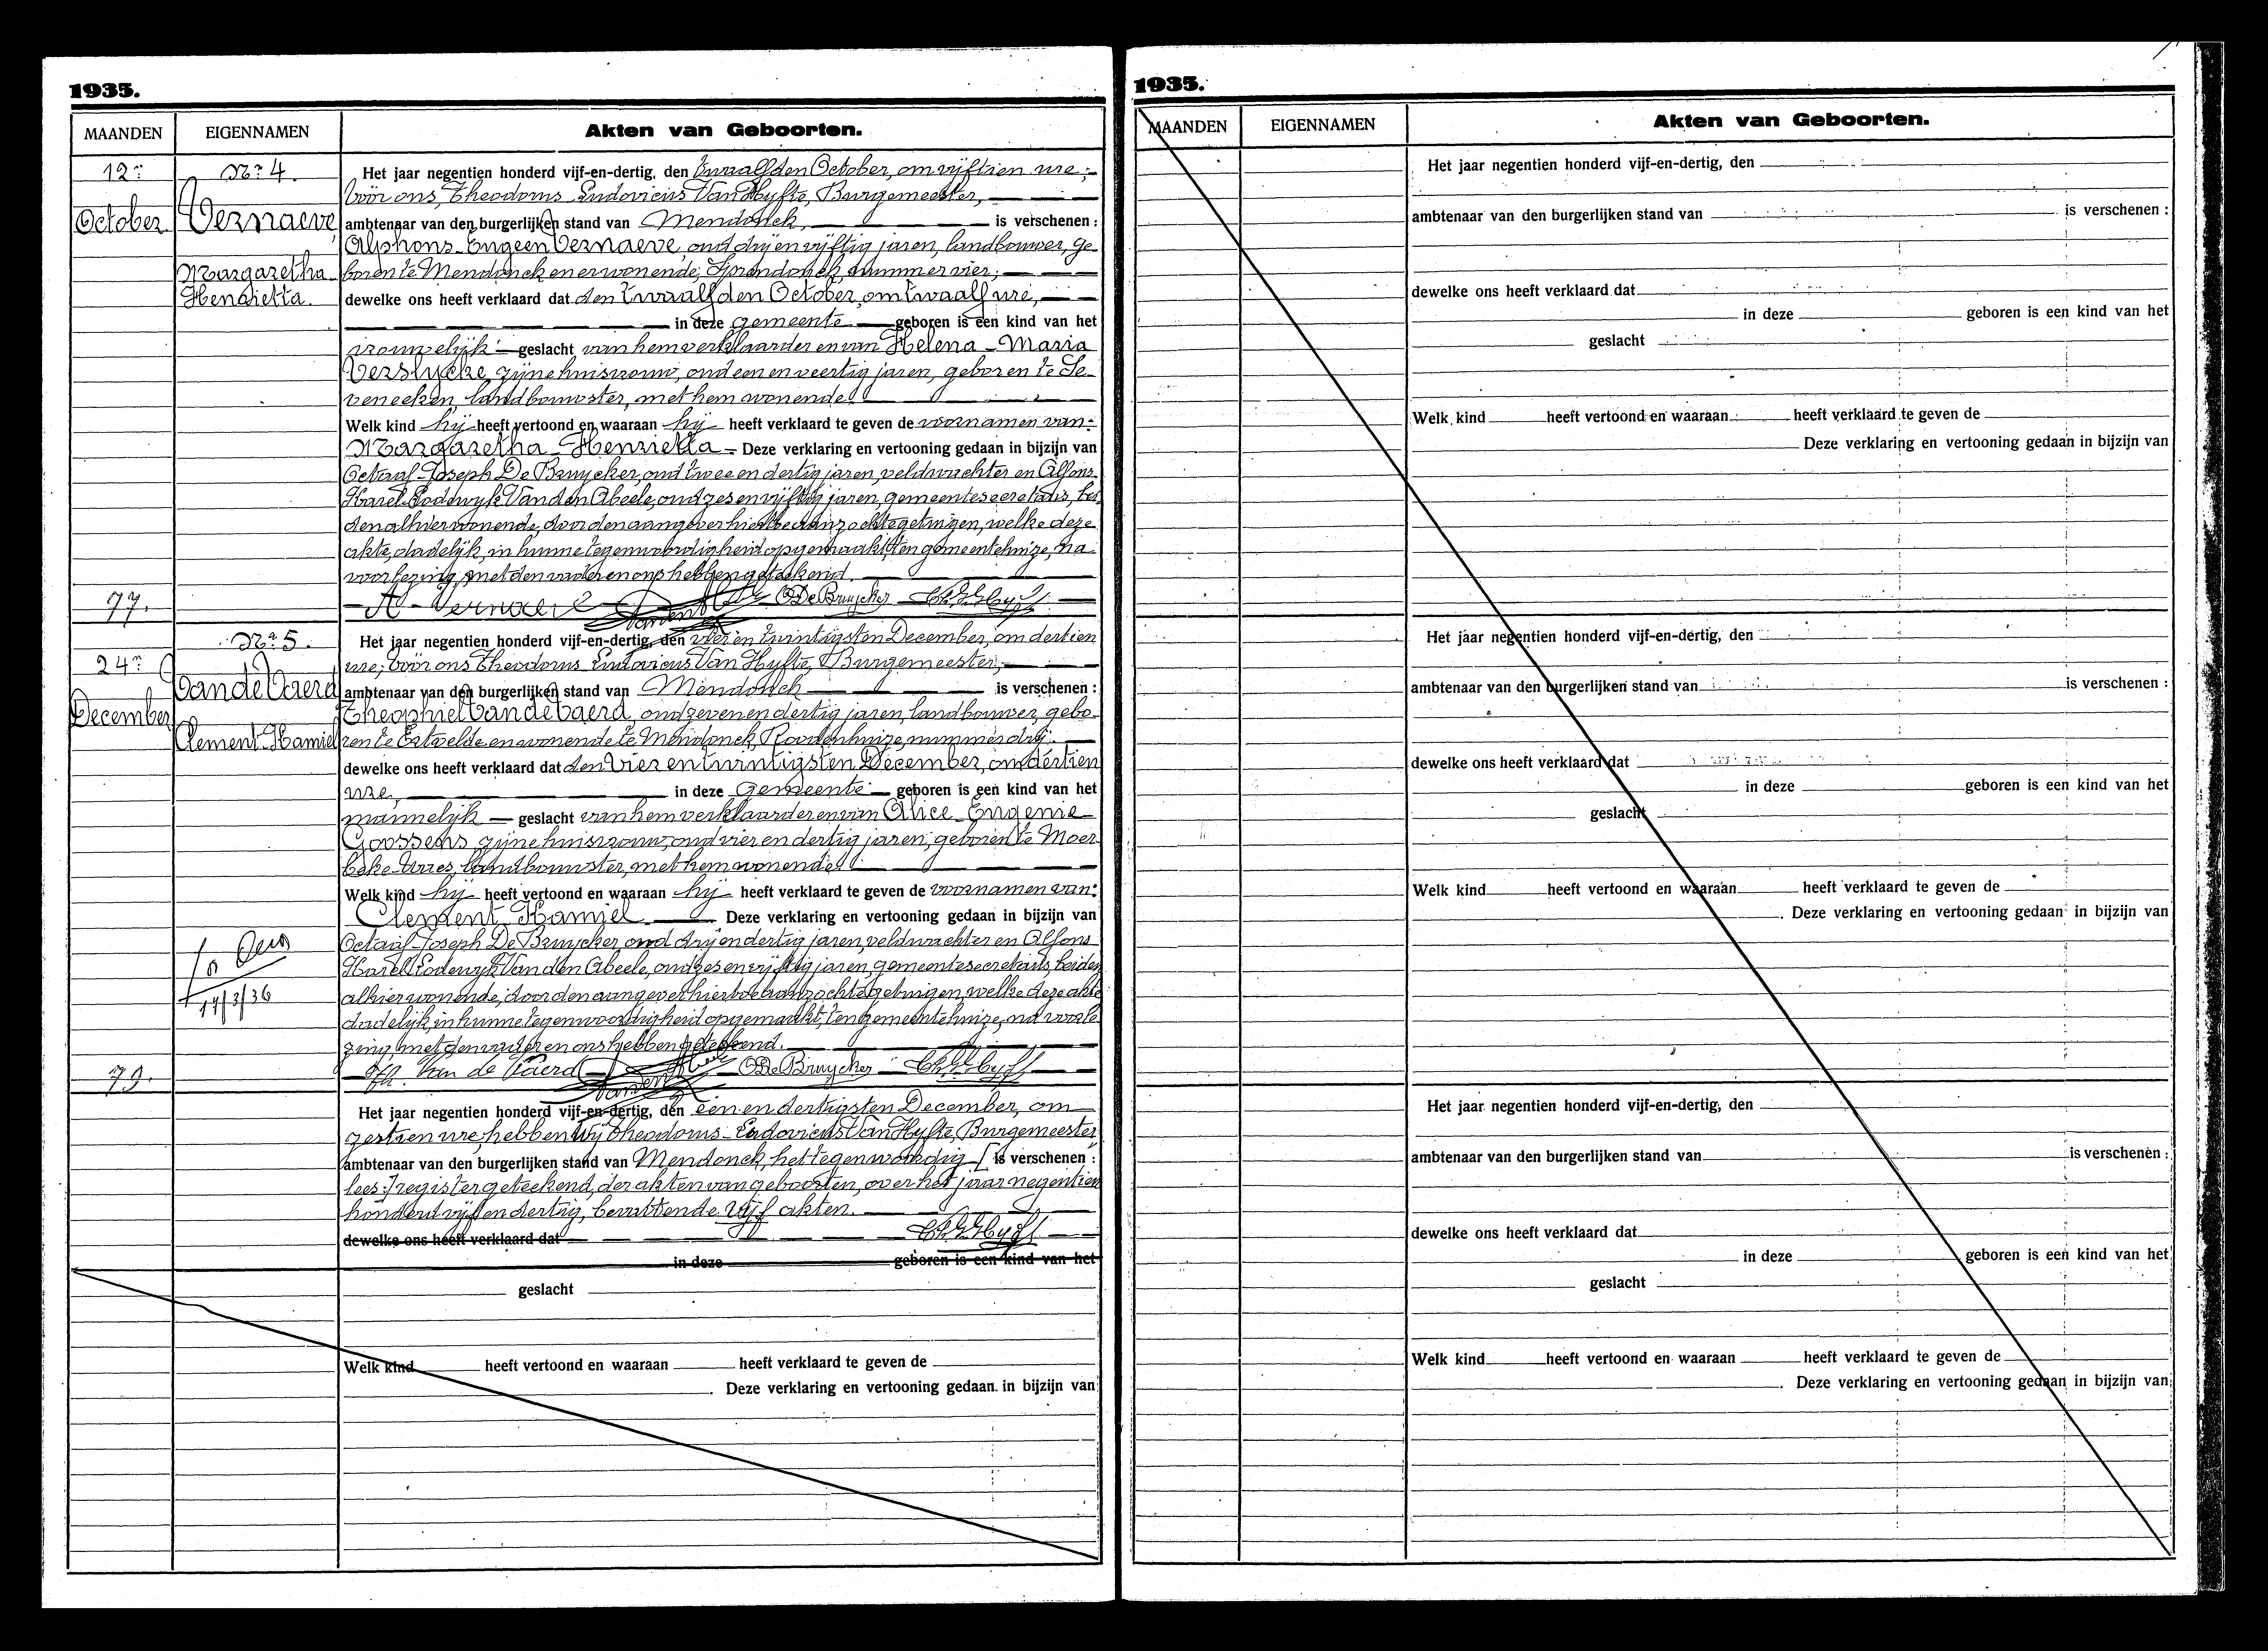 1935.
MAANDEN EIGENNAMEN Akten van Geboorten.
12n Nr 4. Het jaar negentien honderd vijf-en-dertig, den twaalfden October, om vijftien ure;
vóór ons, Theodorus Ludovicus Van Hyfte, Burgemeester,
October Vernaeve ambtenaar van den burgerlijken stand van Mendonck, is verschenen :
Alphons-Eugeen Vernaeve, oud drij en vijftig jaren, landbouwer, ge-
Margaretha boren te Mendonck en er wonende, Spendonck, nummer vier;
Henrietta. dewelke ons heeft verklaard dat den twaalfden October, om twaalf ure,
in deze gemeente geboren is een kind van het
vrouwelijk geslacht van hem verklaarder en van Helena-Maria
Verslycke zijne huisvrouw, oud een en veertig jaren, geboren te Se-
veneeken, landbouwster, met hem wonende.
Welk kind hij heeft vertoond en waaraan hij heeft verklaard te geven de voornamen van:
Margaretha-Henrietta Deze verklaring en vertooning gedaan in bijzijn van
Octaaf-Joseph De Bruycker, oud twee en dertig jaren, veldwachter en Alfons-
Karel-Lodewyk Van den Abeele, oud zes en vijftig jaren, gemeentesecretaris, bei-
den alhier wonende, door den aangever hiertoe aanzochte getuigen, welke deze
akte, dadelijk, in hunne tegenwoordigheid opgemaakt, ten gemeentehuize, na
voorlezing, met den vader en ons hebben geteekend.
77. A. Vernaeve O De Bruycker
Nr 5. Het jaar negentien honderd vijf-en-dertig, den vier en twintigsten December, om dertien
24n ure; vóór ons Theodorus-Ludovicus Van Hyfte, Burgemeester,
Van de Vaerd ambtenaar van den burgerlijken stand van Mendonck is verschenen :
December Theophiel Van de Vaerd, oud zeven en dertig jaren, landbouwer, gebo-
Clement-Kamiel ren te Ertvelde en wonende te Mendonck, Roodenhuize, nummer drij;
dewelke ons heeft verklaard dat den vier en twintigsten December, om dertien
ure, in deze gemeente geboren is een kind van het
mannelijk geslacht van hem verklaarder en van Alice-Eugenie
Goossens, zijne huisvrouw, oud vier en dertig jaren, geboren te Moer-
beke-Waes, landbouwster, met hem wonende.
Welk kind hij heeft vertoond en waaraan hij heeft verklaard te geven de voornamen van:
Clement-Kamiel Deze verklaring en vertooning gedaan in bijzijn van
Octaaf-Joseph De Bruycker, oud drij en dertig jaren, veldwachter en Alfons-
Karel-Lodewyk Van den Abeele, oud zes en vijftig jaren, gemeentesecretaris, beiden
17/3/36 alhier wonende, door den aangever hiertoe aanzochte getuigen, welke deze akte
dadelijk, in hunne tegenwoordigheid opgemaakt, ten gemeentehuize, na voorle-
zing, met den vader en ons hebben geteekend.
79. Th. Van de Vaerd O De Bruycker
Het jaar negentien honderd vijf-en-dertig, den een en dertigsten December, om
zestien ure, hebben Wij Theodorus-Ludovicus Van Hyfte, Burgemeester
ambtenaar van den burgerlijken stand van Mendonck, het tegenwoordig [is verschenen :
lees:] register geteekend, der akten van geboorten, over het jaar negentien
honderd vijf en dertig, bevattende vijf akten.
dewelke ons heeft verklaard dat
in deze geboren is een kind van het
geslacht
Welk kind heeft vertoond en waaraan heeft verklaard te geven de
Deze verklaring en vertooning gedaan in bijzijn van
1935.
MAANDEN EIGENNAMEN Akten van Geboorten.
Het jaar negentien honderd vijf-en-dertig, den
ambtenaar van den burgerlijken stand van is verschenen :
dewelke ons heeft verklaard dat
in deze geboren is een kind van het
geslacht
Welk kind heeft vertoond en waaraan heeft verklaard te geven de
Deze verklaring en vertooning gedaan in bijzijn van
Het jaar negentien honderd vijf-en-dertig, den
ambtenaar van den burgerlijken stand van is verschenen :
dewelke ons heeft verklaard dat
in deze geboren is een kind van het
geslacht
Welk kind heeft vertoond en waaraan heeft verklaard te geven de
Deze verklaring en vertooning gedaan in bijzijn van
Het jaar negentien honderd vijf-en-dertig, den
ambtenaar van den burgerlijken stand van is verschenen :
dewelke ons heeft verklaard dat
in deze geboren is een kind van het
geslacht
Welk kind heeft vertoond en waaraan heeft verklaard te geven de
Deze verklaring en vertooning gedaan in bijzijn van